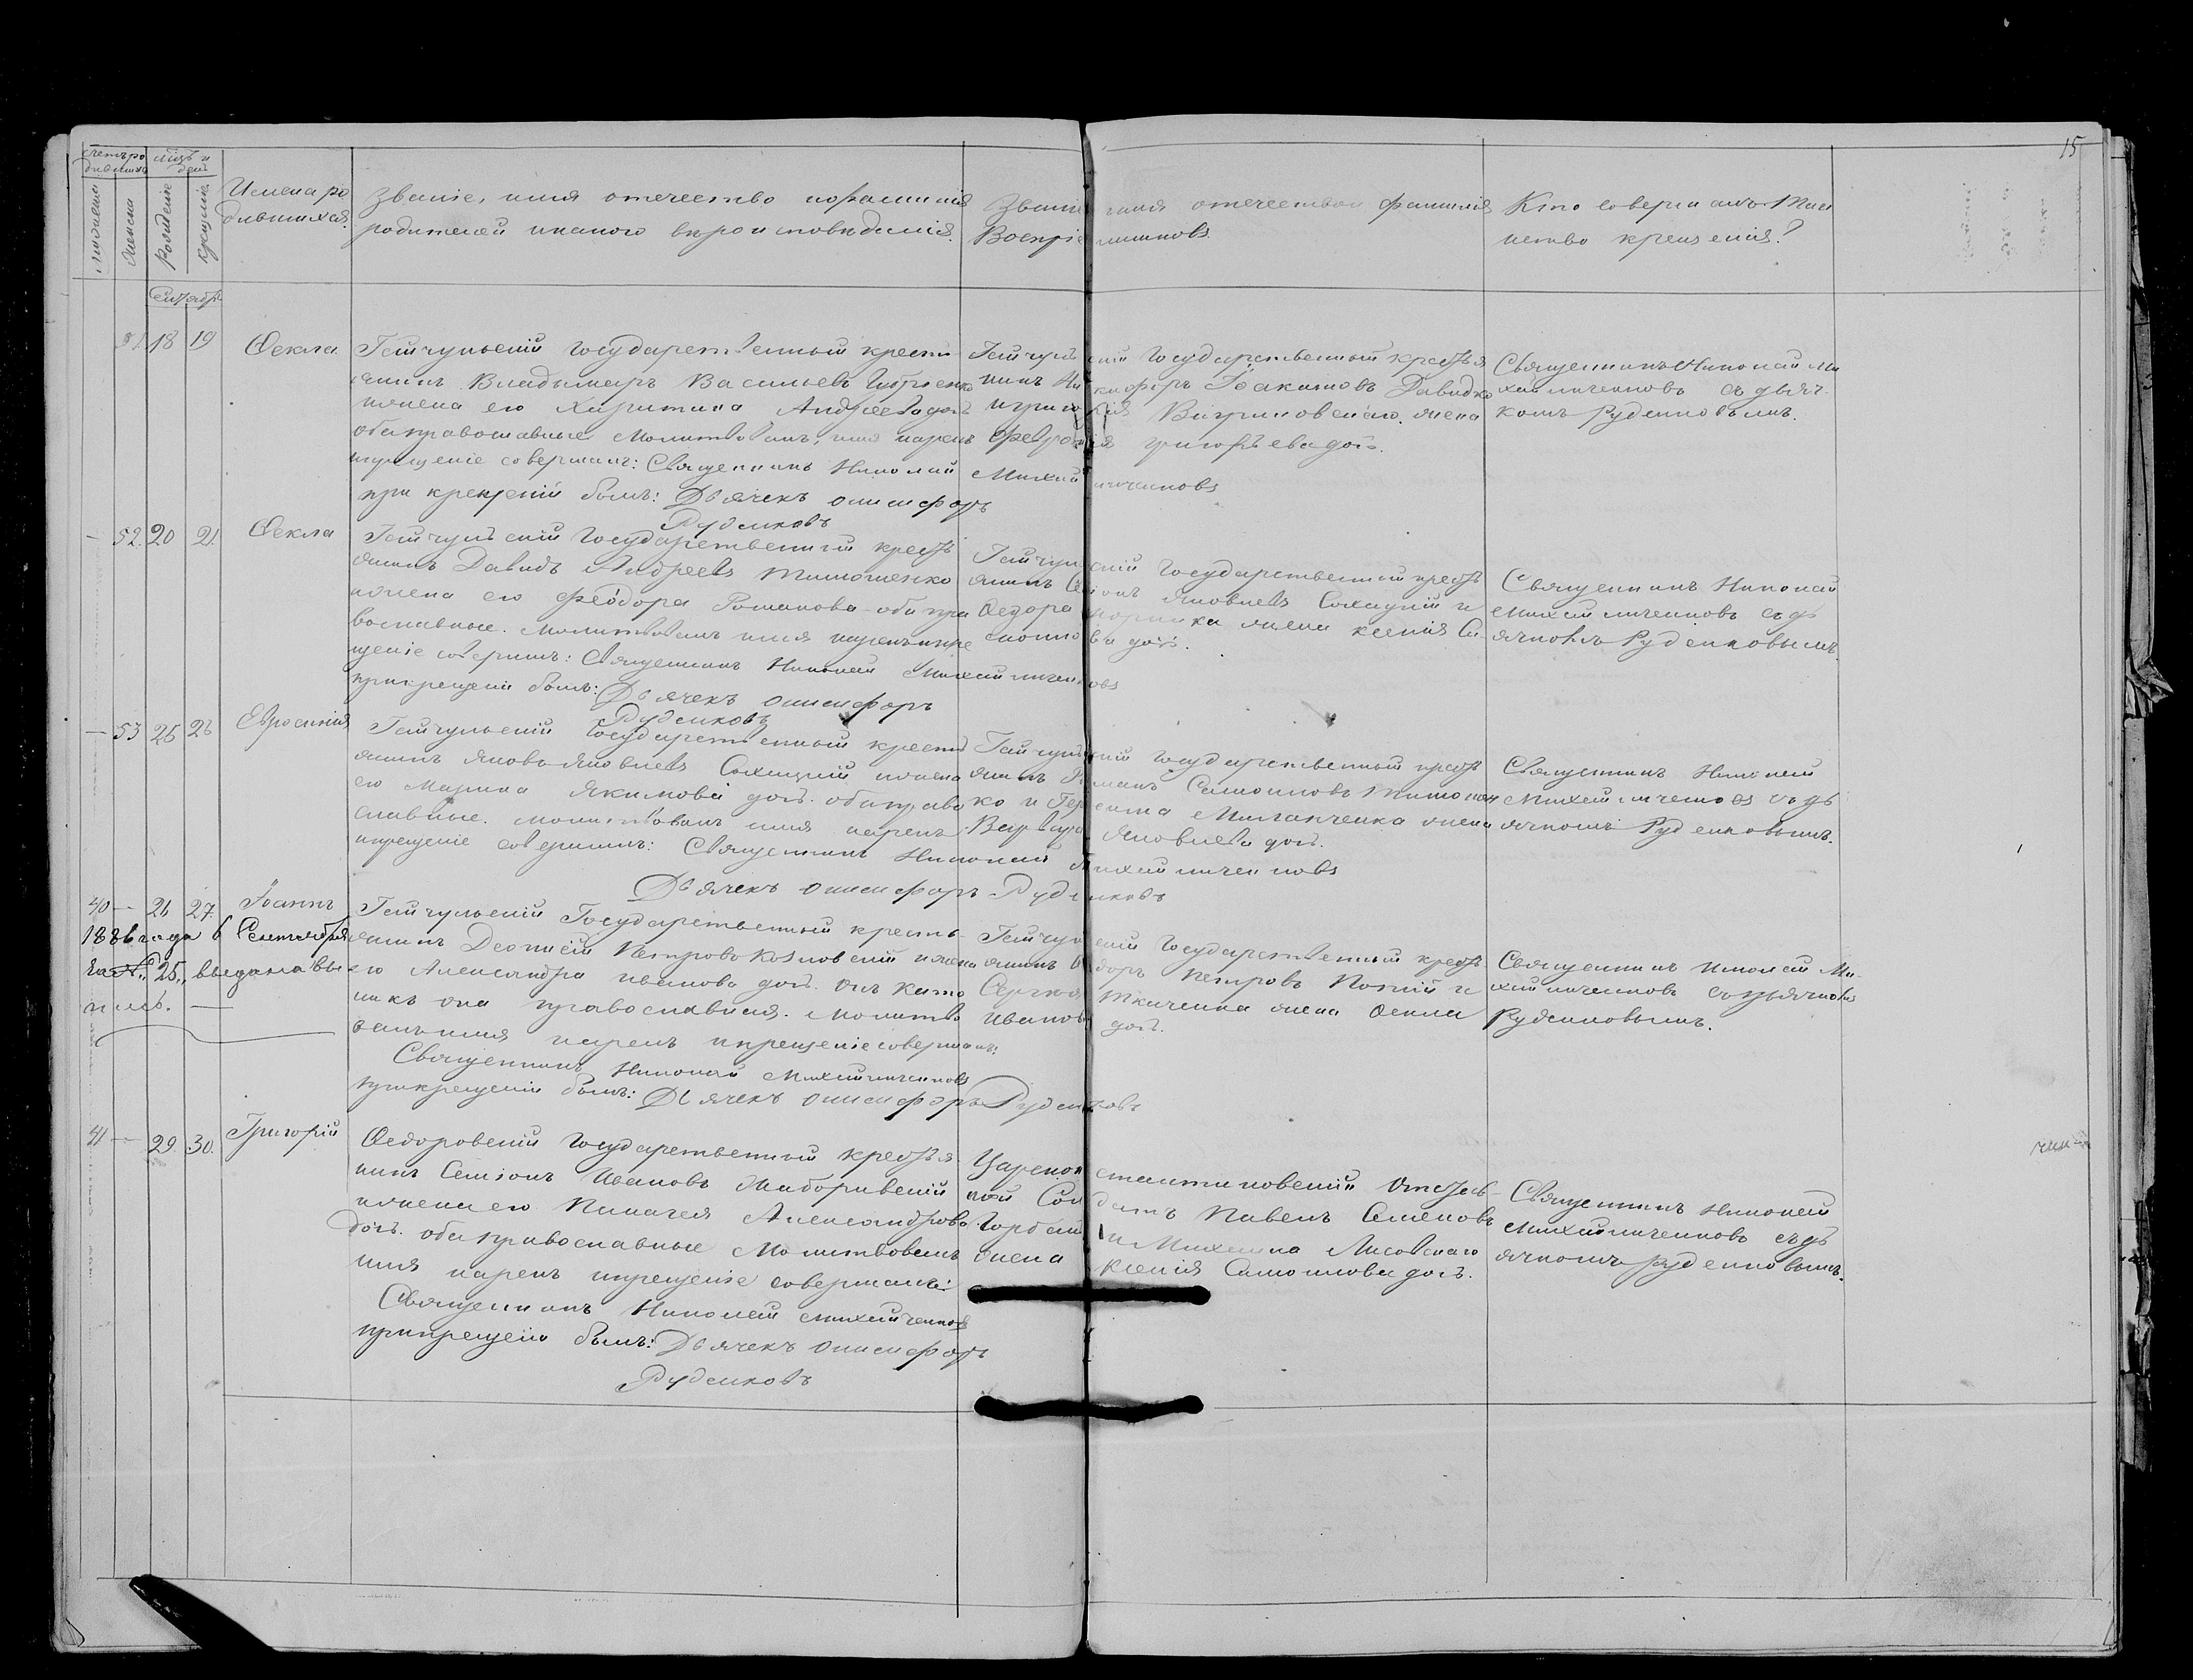 15
Счетъ ро
дившихся
Мѣсяцъ и
день
Рожденіе
крещеніе
Женска
Имена ро
дившихся
Званіе, имя отечество и фамилія
родителей и какого вѣроисповѣданія.
Званіе имя отечество и фамилія
Воспріемниковъ
Кто совершалъ Таи
нство крещенія?
Сентябрь
51 18 19 Ѳекла
Гайчульскій государственный крестья
янинъ Владимеръ Васильевъ
и жена его Харитина Андреева дочь
оба православные Молитвовалъ, имя нарекъ
и крещеніе совершалъ: Священникъ Николай Михайличенковъ
при крещеніи былъ: Дьячекъ Онисифоръ
Руденковъ
Гайчульскій государственный крестья
нинъ Никифоръ Іоакимовъ Давидко
и григорія жена
Феврона григорьева дочь.
Священникъ Николай Ми
хайличенковъ съ дьяч
комъ Руденковымъ.
— 52. 20 21. Ѳекла
Гайчульскій государственный кресть
янинъ Давидъ Андреевъ Тимошенко
и жена его Феодора Романова оба пра
вославные. Молитвовалъ имя нарекъ и кре
щеніе соверш.: Священникъ Николай Михайличенковъ
при крещеніи былъ: Дьячекъ Онисифоръ
Руденковъ
Гайчульскій государственный кресть
янинъ Яковлевъ Сохацкій и
Ѳедора жена ксенія Си
Священникъ Николай
Михайличенковъ съ дь
ячкомъ Руденковымъ.
— 53 25 26 Евросинія
Гайчульскій государственный крестья
янинъ Яковъ Яковлевъ Сохацкій и жена
его Марина Якимова дочь. оба право
славные. молитвовалъ имя нарекъ
и крещеніе совершилъ: Священникъ Николай Михайличенковъ
Дьячекъ Онисифоръ Руденковъ
Гайчульскій государственный кресть
янинъ Романъ Самойловъ Тимошен
ко и жена
Варвара Яковлева дочь.
Священникъ Николай
Михайличенковъ съ дь
ячкомъ Руденковымъ.
40 — 26 27. Іоаннъ
1886 года 6 Сентября
за №. 25., выдана вы
пись. —
Гайчульскій Государственный кресть
янинъ Петровъ Козловскій и жена
его Александра иванова дочь. онъ като
ликъ она православная. Молитво
валъ имя нарекъ и крещеніе совершалъ:
Священникъ Николай Михайличенковъ
при крещеніи былъ: Дьячекъ Онисифоръ Руденковъ
Гайчульскій государственный кресть
янинъ Петровъ и
Ткаченка жена Ѳекла
Иванова дочь.
Священникъ Николай Ми
хайличенковъ съ дьячковъ
Руденковымъ.
41 — 29 30. Григорій
Ѳедоровскій Государственный крестья
нинъ Семіонъ Ивановъ
и жена его Пилагея Александрова
дочь. оба православные Молитвовалъ
имя нарекъ и крещеніе совершалъ:
Священникъ Николай Михайличенковъ
при крещеніи былъ: Дьячекъ Онисифоръ
Руденковъ
Царекон стантиновскій отстав
ной Солдатъ Павелъ Семеновъ
и Михаила Лисовскаго
жена Ксенія Самойлова дочь.
Священникъ Николай
Михайличенковъ съ дь
ячкомъ Руденковымъ.